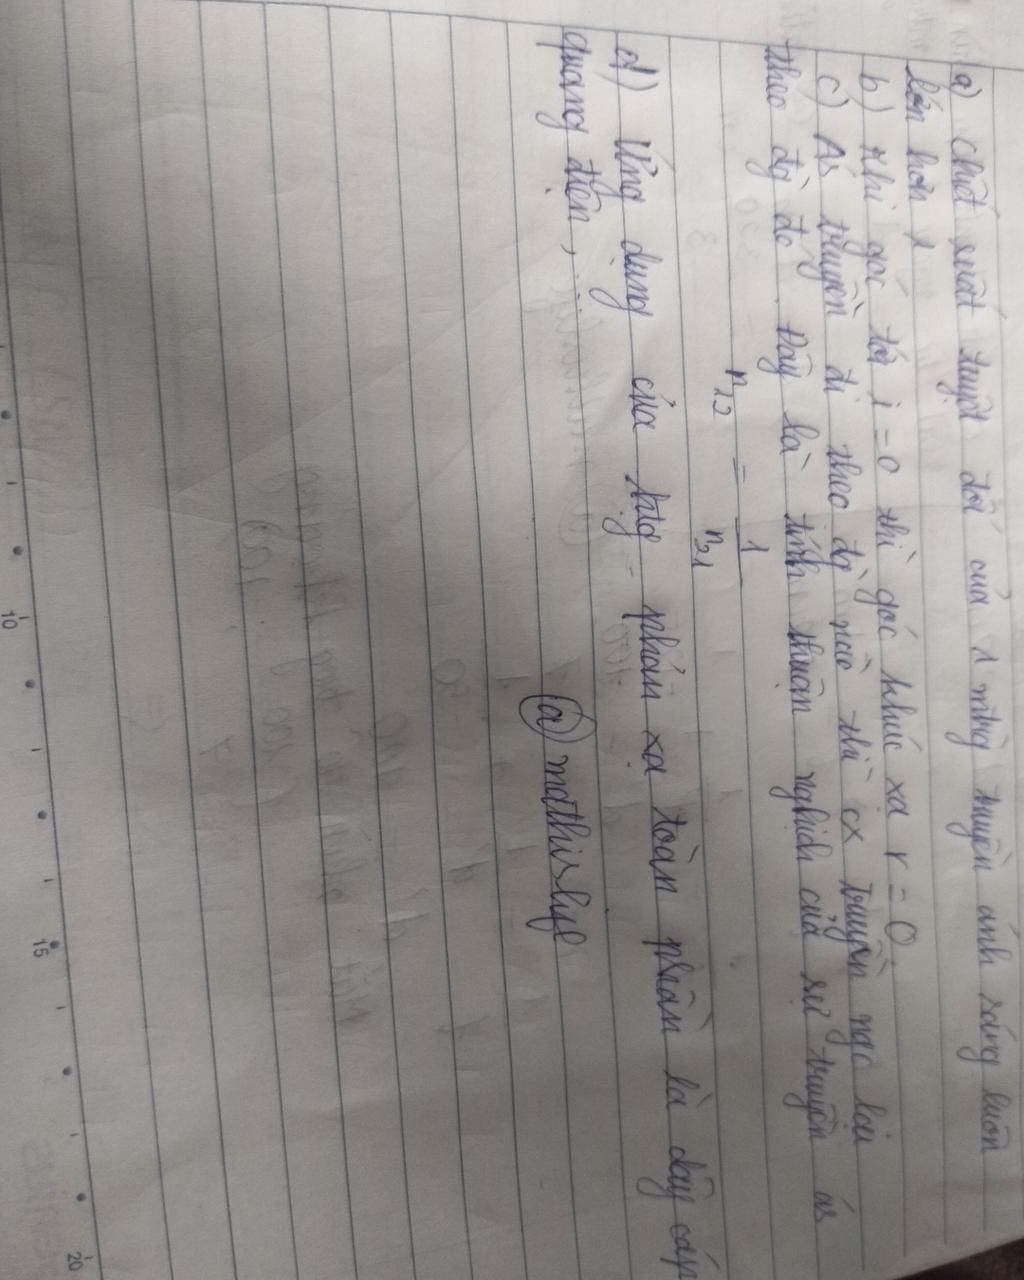 a) chiết suất tuyệt đối của 1 mtrg truyền ánh sáng luôn
lớn hơn 1
b) khi góc tới i = 0 thì góc khúc xạ r = 0.
c) As truyền đi theo đg nào thì cx truyền ngc lại
theo đg đó. Đây là tính thuận nghịch của sự truyền ás
n12 = 1
n21
d) Ứng dụng của htg phản xạ toàn phần là dây cáp
quang điện,
@ mathislyf
10
15
20